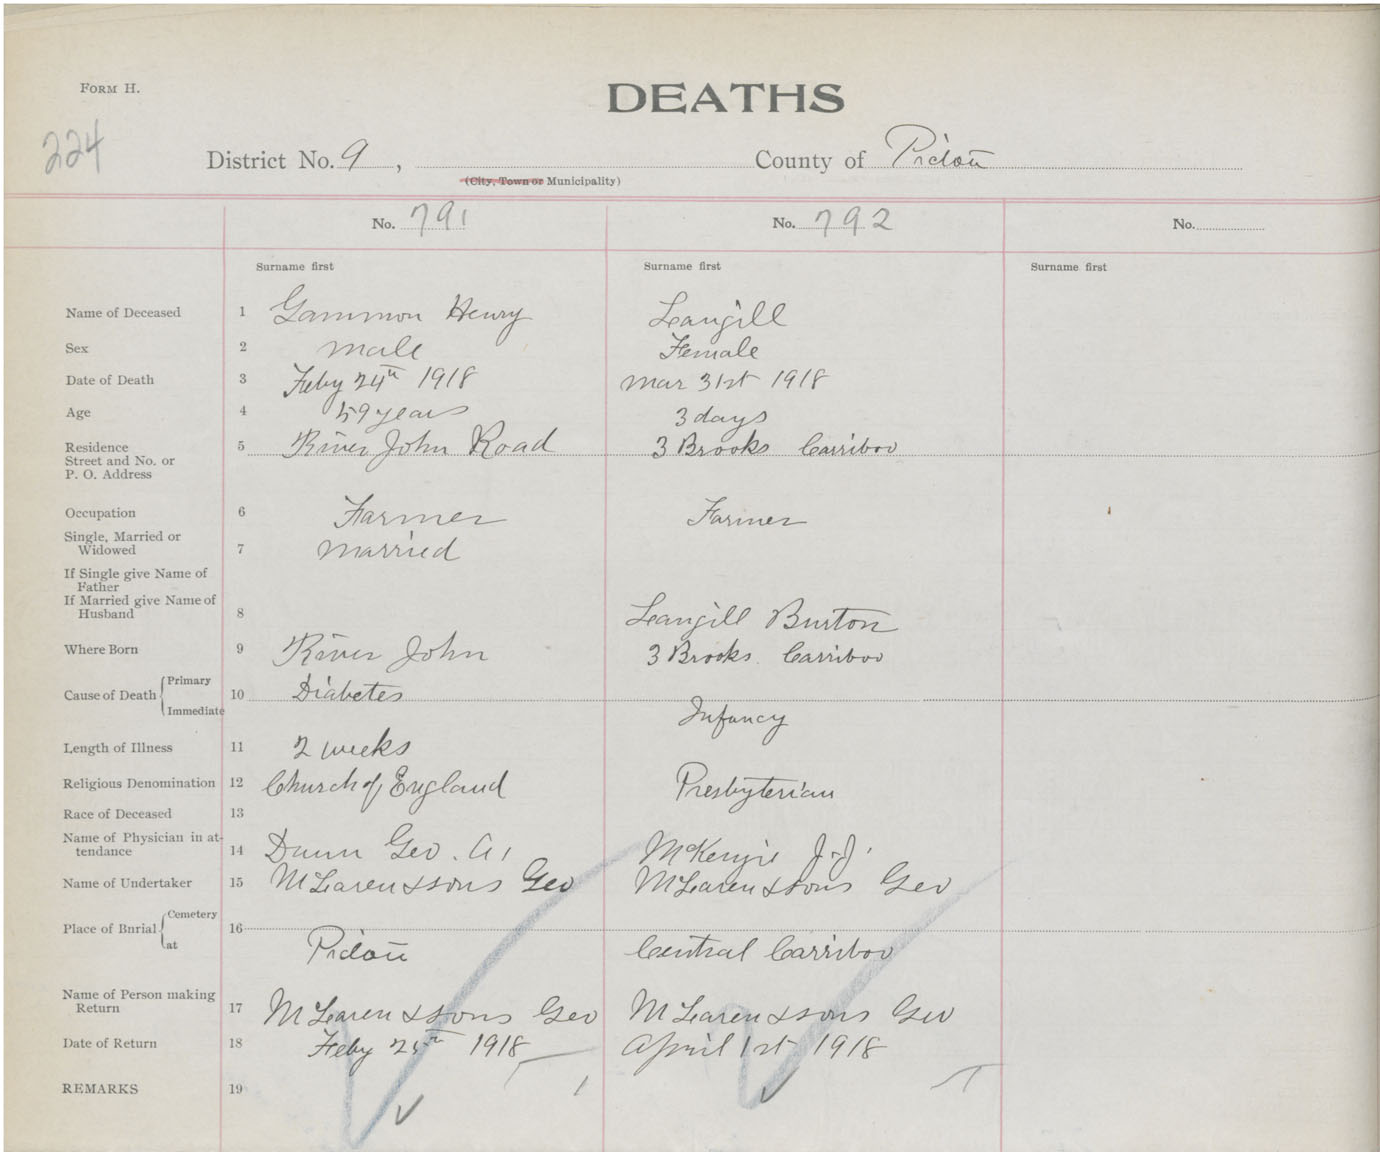 FORM H.
DEATHS
224
District No. 9, County of Pictou
(City, Town or Municipality)
No. 791 No. 792 No.
Surname first Surname first Surname first
Name of Deceased 1 Gammon Henry Langill
Sex 2 male Female
Date of Death 3 Feby 24th 1918 Mar 31st 1918
Age 4 59 years 3 days
Residence 5 River John Road 3 Brooks Carriboo
Street and No. or
P. O. Address
Occupation 6 Farmer Farmer
Single, Married or
Widowed 7 Married
If Single give Name of
Father
If Married give Name of
Husband 8 Langill Burton
Where Born 9 River John 3 Brooks Carriboo
Cause of Death Primary 10 Diabetes
Immediate Infancy
Length of Illness 11 2 weeks
Religious Denomination 12 Church of England Presbyterian
Race of Deceased 13
Name of Physician in at-
tendance 14 Dunn Geo. A. McKenzie J.J.
Name of Undertaker 15 McLaren & Sons Geo McLaren & Sons Geo
Place of Bnrial Cemetery 16
at Pictou Central Carriboo
Name of Person making
Return 17 McLaren & Sons Geo McLaren & Sons Geo
Date of Return 18 Feby 25th 1918 April 1st 1918
REMARKS 19